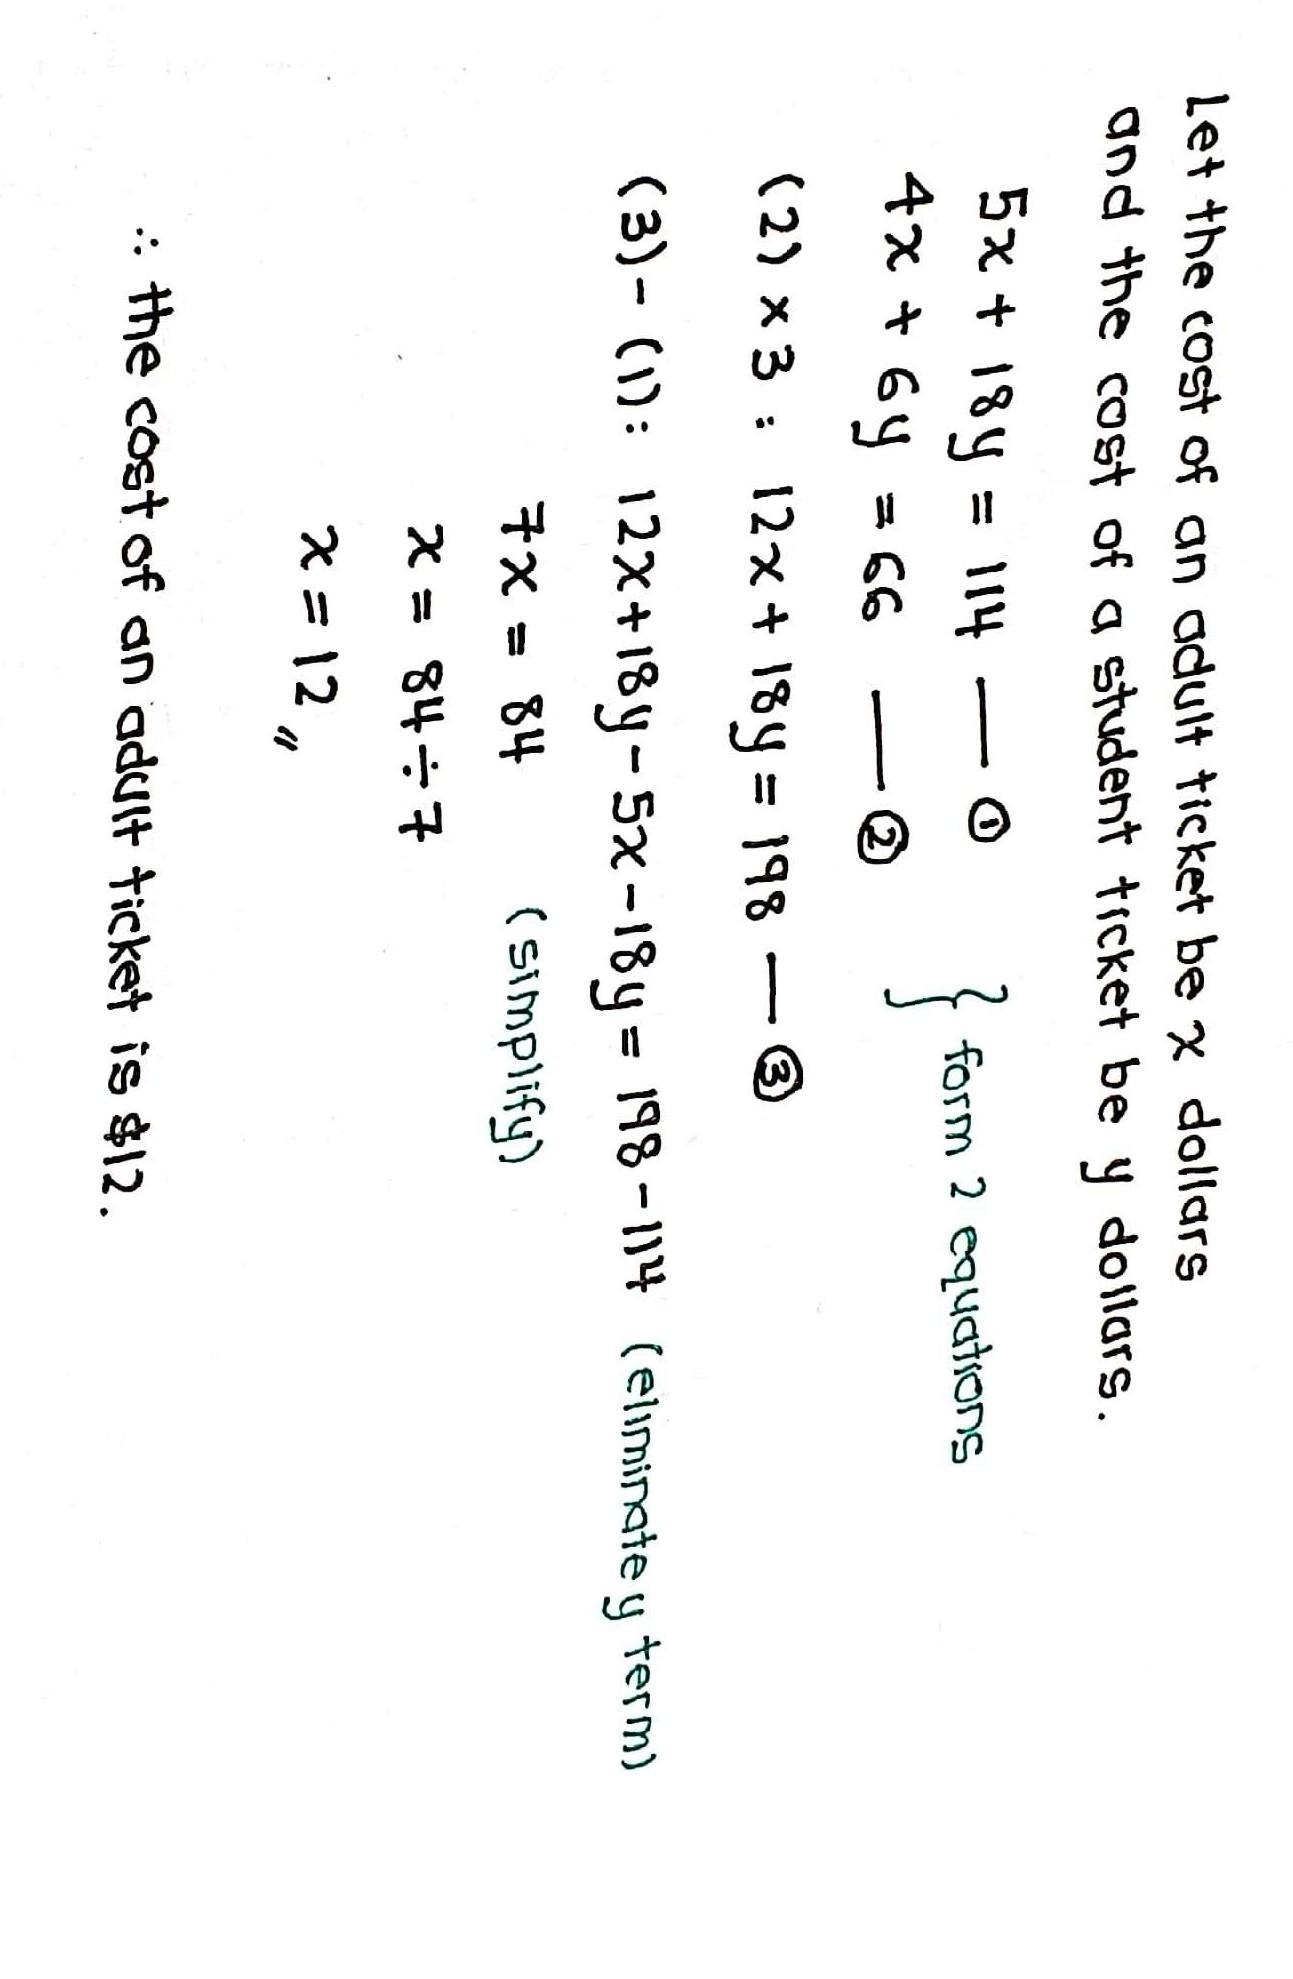 Let the cost of an adult ticket be x dollars
and the cost of a student ticket be y dollars.
5x + 18y = 114 — ①
4x + 6y = 66 — ② } form 2 equations
(2) × 3 : 12x + 18y = 198 — ③
(3) - (1): 12x + 18y - 5x - 18y = 198 - 114 (eliminate y term)
7x = 84 (simplify)
x = 84 ÷ 7
x = 12 〃
∴ the cost of an adult ticket is $12.